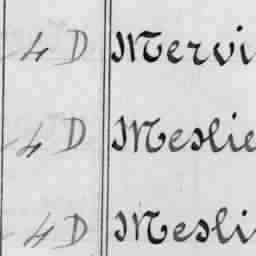 4 D Mervi
4 D Meslie
4 D Mesli